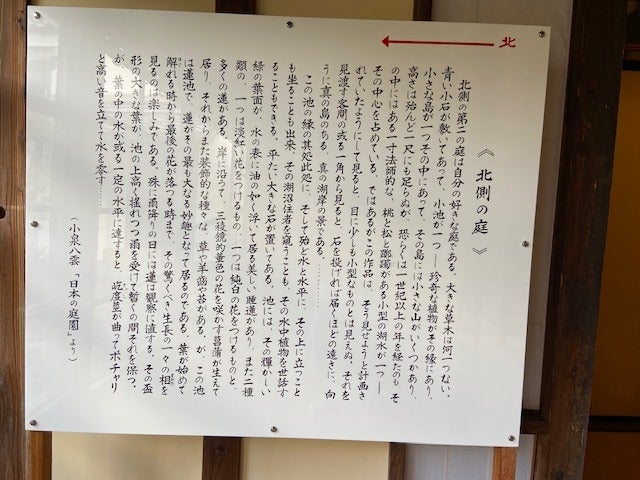 北
《 北側の庭 》
北側の第二の庭は自分の好きな庭である、大きな草木は何一つない。
青い小石が敷いてあって、小池が一つ―珍奇な植物がその縁にあり、
小さな島が一つその中にあって、その島には小さな山がいくつかあり、
高さは殆んど一尺にも足らぬが、恐らくは一世紀以上の年を経たのも そ
の中にはある一寸法師的な、桃と松と躑躅がある小型の湖水が一つ―
その中心を占めている。ではあるがこの作品は、そう見せようと計画さ
れていたようにして見ると、目に少しも小型なものとは見えぬ。それを
見渡す客間の或る一角から見ると、石を投げれば届くほどの遠さに、向
うに真の島のある、真の湖岸の景である。………
この池の縁の其処此処に、そして殆と水と水平に、その上に立つこと
も坐ることも出来、その湖沼住者を窺うことも、その水中植物を世話す
ることもできる。平たい大きな石が置いてある。池には、その輝かしい
緑の葉面が、水の表に油の如く浮いて居る美しい睡蓮があり、また二種
類の、一つは淡紅い花をつけるもの、一つは純白の花をつけるものと、
多くの蓮がある。岸に沿うて、三稜鏡的菫色の花を咲かす菖蒲が生えて
居り、それからまた装飾的な種々な、草や羊歯や苔がある。が、この池
は蓮池で、蓮がその最も大なる妙趣となって居るのである。葉が始めて
解れる時から最後の花が落つる時まで、その驚くべき生長の一々の相を
見るのは楽しみである。殊に雨降りの日には蓮は観察に値する。その盃
形の大きな葉が、池の上高く揺れつつ雨を受けて暫くの間それを保つ。
が、葉の中の水が或る一定の水平に達すると、屹度茎が曲ってボチャリ
と高い音を立てて水を零す……
(小泉八雲「日本の庭園」より)